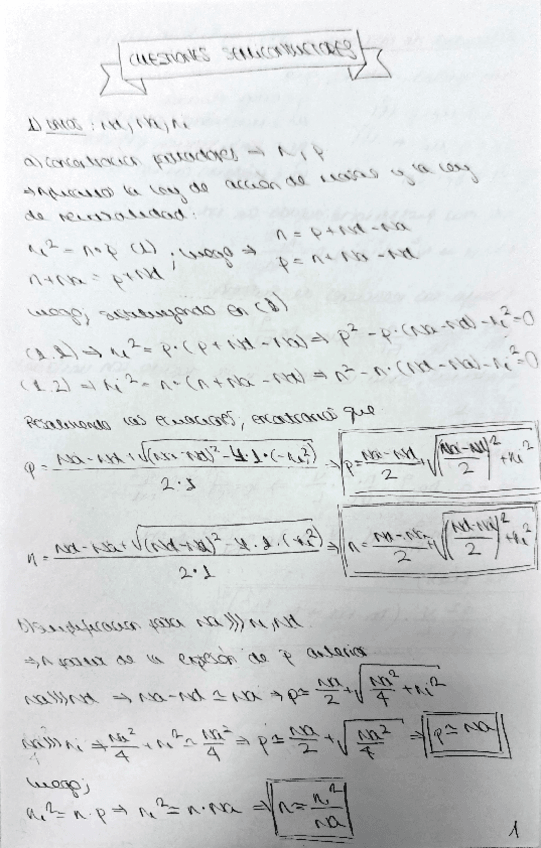 CUESTIONES SEMICONDUCTORES
1) DATOS: Nd, Na, ni
a) Concentración portadores ⇒ n, p
⇒ Aplicamos la ley de acción de masas y la ley
de neutralidad:
ni² = n·p (1) ; luego ⇒ n = p + Nd - Na
n + Na = p + Nd p = n + Na - Nd
luego; sustituyendo en (1)
(1.1) ⇒ ni² = p·(p + Nd - Na) ⇒ p² - p·(Na - Nd) - ni² = 0
(1.2) ⇒ ni² = n·(n + Na - Nd) ⇒ n² - n·(Nd - Na) - ni² = 0
Resolviendo las ecuaciones, encontramos que
p = (Na - Nd + √((Na - Nd)² - 4·1·(-ni²))) / 2·1 ⇒ p = (Na - Nd)/2 + √(((Na - Nd)/2)² + ni²)
n = (Nd - Na + √((Nd - Na)² - 4·1·(-ni²))) / 2·1 ⇒ n = (Nd - Na)/2 + √(((Nd - Na)/2)² + ni²)
b) Simplificación para Na >>> ni, Nd
⇒ A partir de la expresión de p anterior
Na >>> Nd ⇒ Na - Nd ≃ Na ⇒ p ≃ Na/2 + √(Na²/4 + ni²)
Na >> ni ⇒ Na²/4 + ni² ≃ Na²/4 ⇒ p ≃ Na/2 + √(Na²/4) ⇒ p ≃ Na
luego;
ni² = n·p ⇒ ni² = n·Na ⇒ n = ni²/Na
1